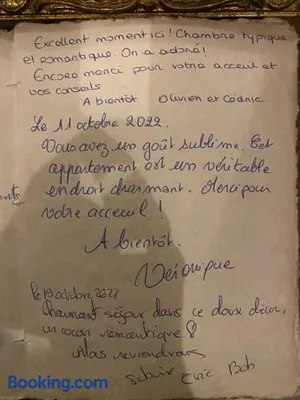 Excellent moment ici! Chambre typique
et romantique. On a adoré!
Encore merci pour votre acceuil et
vos conseils
A bientôt Olivier et Cédric
Le 11 octobre 2022.
Vous avez un goût sublime. Cet
appartement est un véritable
endroit charmant. Merci pour
votre acceuil!
A bientôt.
Véronique
le 19 octobre 2022
Charmant séjour dans ce doux décor,
un cocon romantique!
Nous reviendrons
Eric
Booking.com